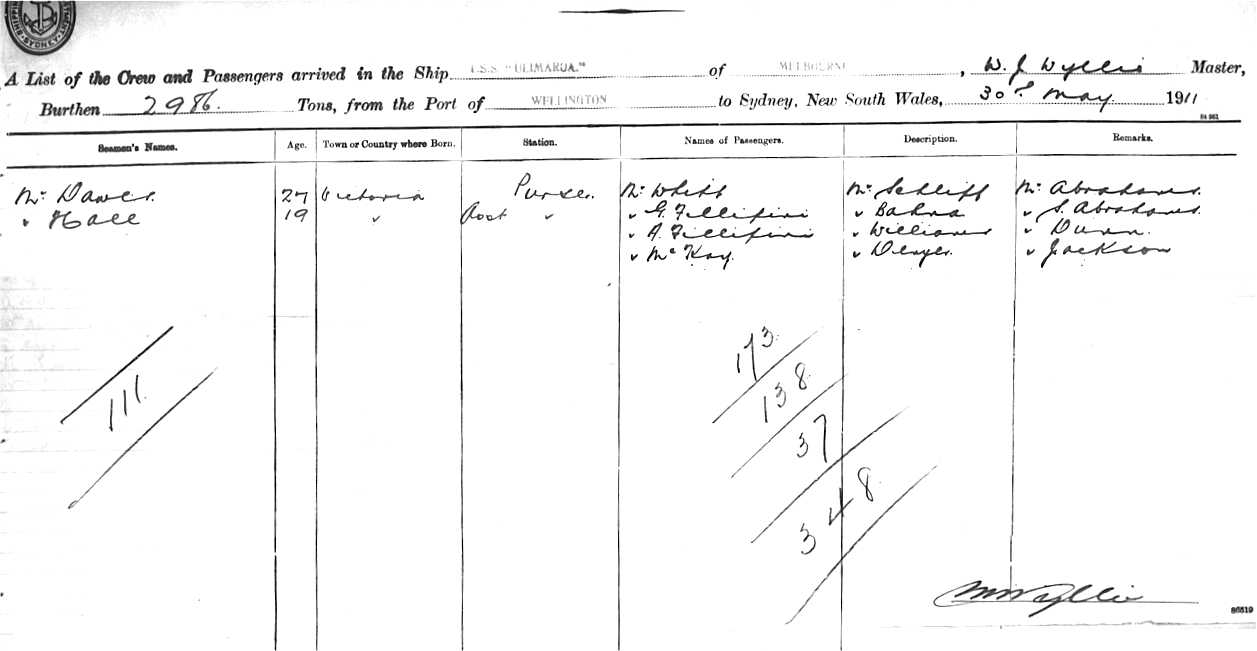 SYDNEY
A List of the Crew and Passengers arrived in the Ship T.S.S. "ULIMAROA." of MELBOURNE, W. J. Wyllie Master,
Burthen 2986. Tons, from the Port of WELLINGTON to Sydney, New South Wales, 30th May 1911
84 961
Seamen's Names. Age. Town or Country where Born. Station. Names of Passengers. Description. Remarks.
Mr Dawes. 27 Victoria Purser. Mr White Mr Schliff Mr Abrahams.
" Hall 19 " Asst " " G. Fillifini " " S. Abrahams.
" A. Fillifini " Williams " Dunn.
" McKay. " Denyer. " Jackson
173
111. 138
37
348
Wyllie
86519